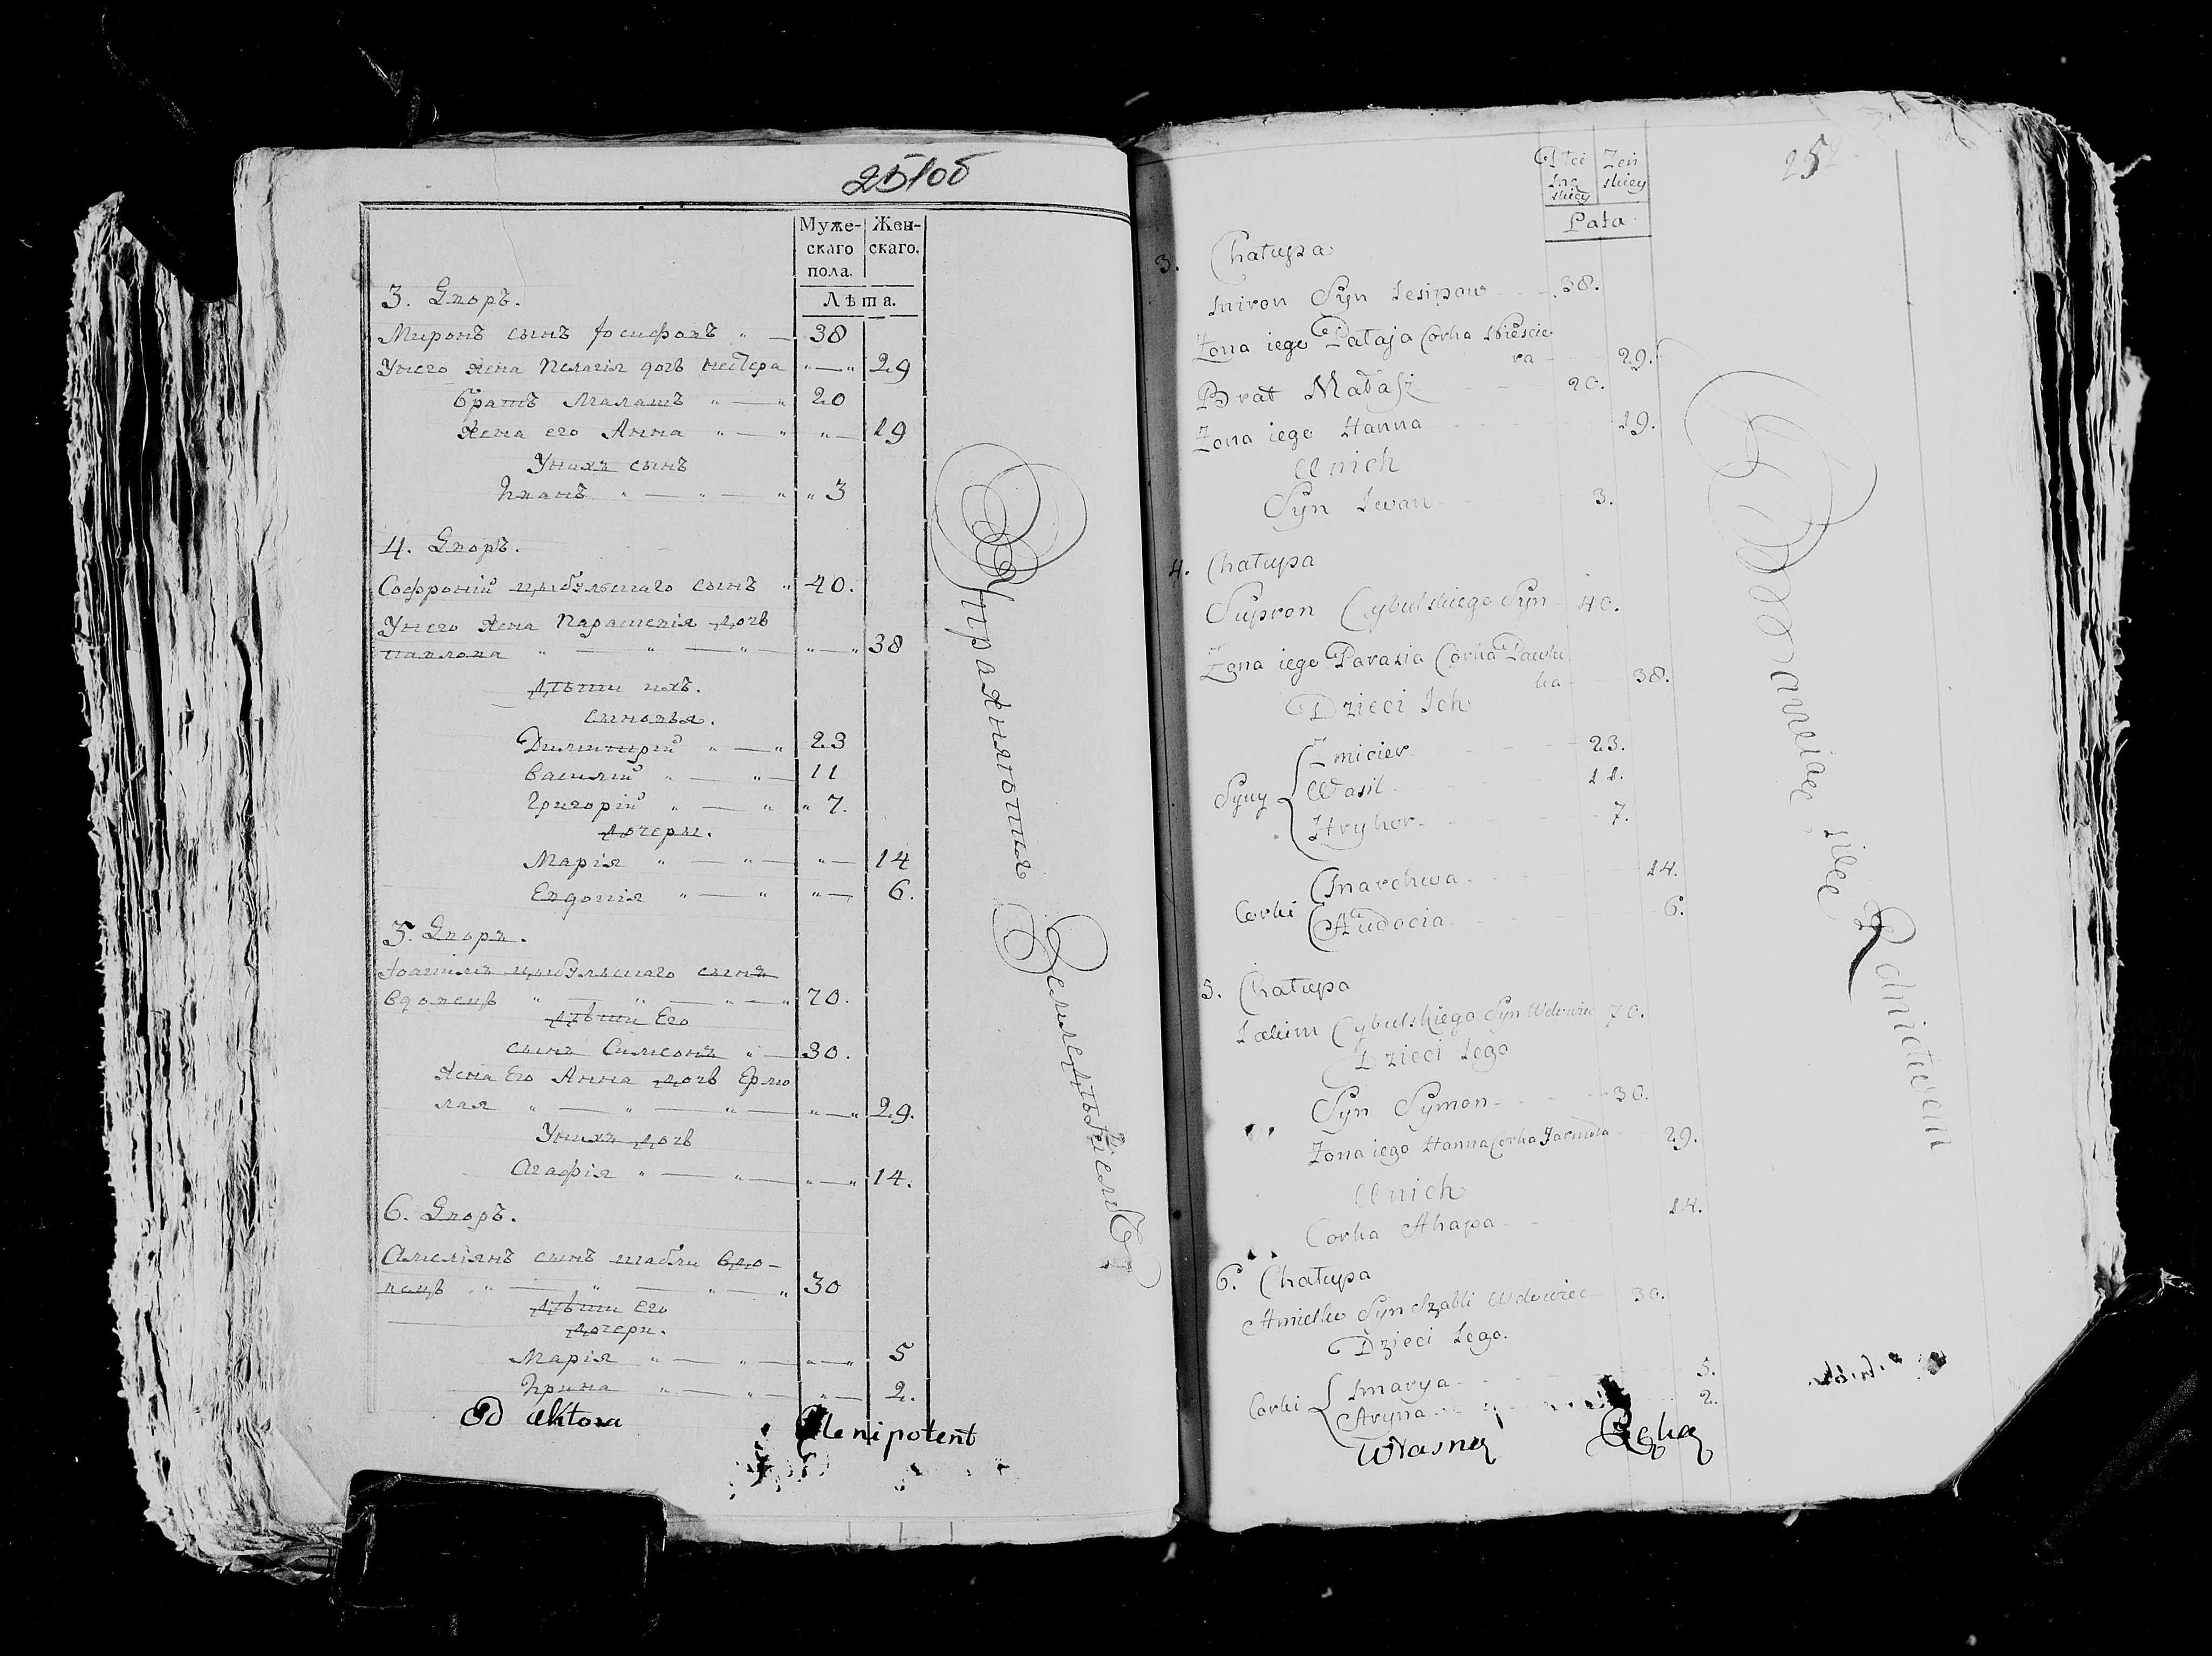 251об
Муже- Жен-
скаго скаго.
пола.
Лѣта.
3. Дворъ.
Миронъ сынъ Іосифовъ " — 38
Унего жена Пелагія дочь нестера " — " 29
братъ Малашъ " — " 20
жена его Анна " — " " — 19
Унихъ сынъ
Иванъ " — " — " " 3
4. Дворъ.
Софроній цыбульскаго сынъ " 40.
Унего жена Парашевія дочь
павлова " — " — " — " — " 38
дѣти ихъ.
сыновья.
Димитрій " — " 23
василій " — " — 11
Григорій " — " " 7.
дочери.
Марія " — " — " — 14
Евдокія " — " " — 6.
5. Дворъ.
Іоакимъ цыбульскаго сынъ
вдовецъ " — " — " — " 70.
дѣти Его
сынъ Симеонъ " — 30.
жена Его Анна дочь Ермо
лая " — " — " — " — " 29.
Унихъ дочь
Агафія " — " — " — " 14.
6. Дворъ.
Амеліянъ сынъ шабли вдо-
вецъ " — " — " — " 30
дѣти его
дочери.
Марія " — " — " — " 5
Ирина " — " — " — 2.
Упражняются Земледѣліемъ
Od Aktora Plenipotent
252
Płci Zeń
Mę skiey
skiey
Lata
3. Chałupa
Miron Syn Jesipow 38.
Zona iego Pałaja Corka Nieście-
ra 29.
Brat Małasz 20.
Zona iego Hanna 19.
U nich
Syn Iwan 3.
4. Chałupa
Supron Cybulskiego Syn 40.
Zona iego Parasia Corka Pawlu
ka 38.
Dzieci Ich
Zmicier 23.
Syny Wasil 11.
Hryhor 7.
Marchwa 14.
Corki Audocia 6.
5. Chałupa
Jakim Cybulskiego Syn Wdowiec 70.
Dzieci Iego
Syn Symon 30.
Zona iego Hanna Corka Jarmoła 29.
U nich
Corka Ahapa 14.
6. Chałupa
Amielko Syn Szabli Wdowiec 30.
Dzieci Iego.
Marya 5.
Corki Aryna 2.
Rolnictwem
Własną Ręką